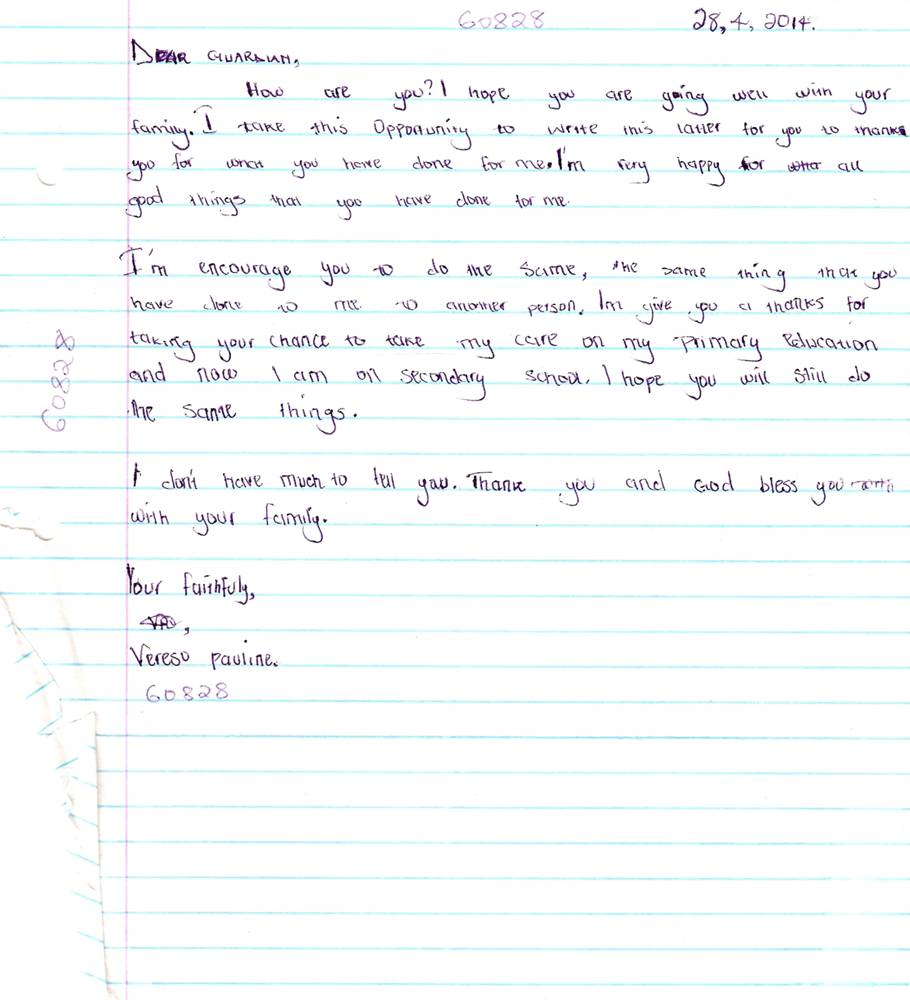 60828
28, 4, 2014.
DEAR GUARDIAN,
How are you? I hope you are going well with your
family. I take this Opportunity to write this latter for you to thanks
you for what you have done for me. I'm very happy for all
good things that you have done for me.
I'm encourage you to do the same, the same thing that you
have done to me to another person. Im give you a thanks for
taking your chance to take my care on my primary Education
and now I am on secondary school. I hope you will still do
the same things.
I don't have much to tell you. Thank you and God bless you
with your family.
Your faithfuly,
Vereso pauline.
60828
60828